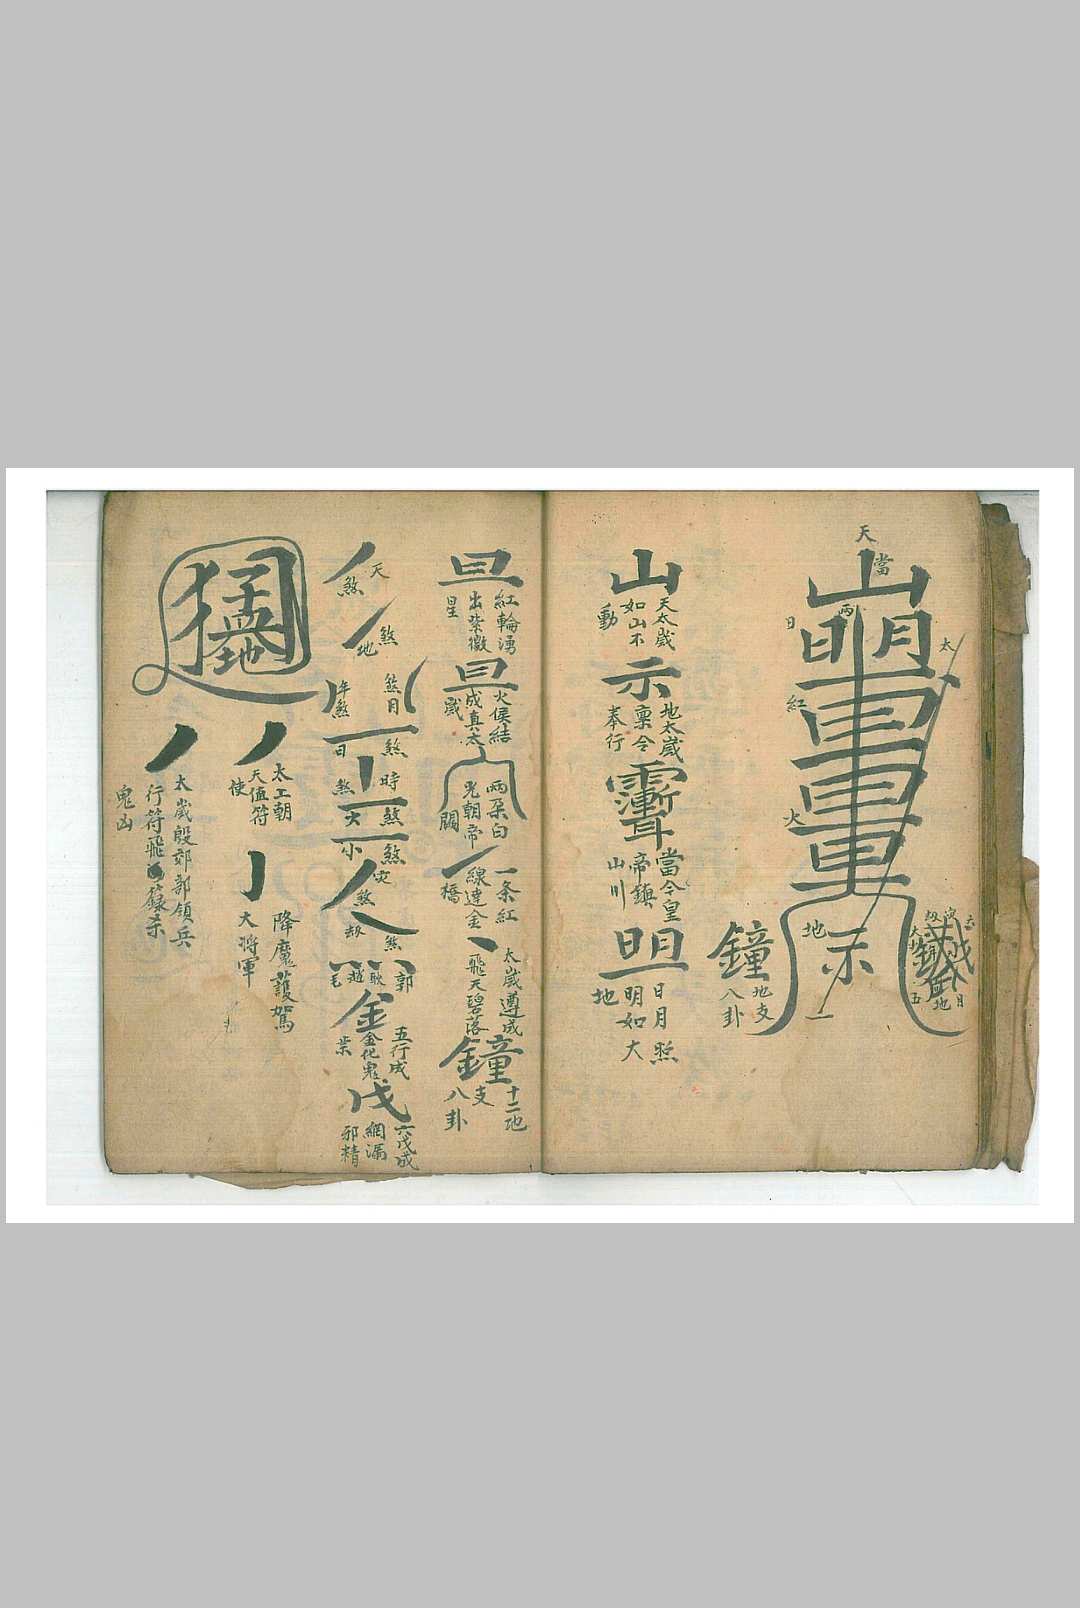 天
當
兩
日
太
紅
火
地
一
鐘
地支
八卦
山
天太歲
如山不
動
示
地太歲
稟令
奉行
當令皇
帝鎮
山川
明
日月照
明如大
地
紅輪湧
出紫微
星
火候結
成真太
歲
兩朵白
光朝帝
闕
一条紅
線達金
橋
太歲遵成
飛天碧落
鐘
十二地
支
八卦
天
煞
地
煞
年煞
月
煞
日
煞
時
煞
大
煞
小
煞
灾
煞
劫
煞
金
五行成
金化鬼
戊
六戊成
網漏
邪精
地
太上朝
天值符
使
降魔護駕
大將軍
太歲殷郊部領兵
行符飛籙杀
鬼凶